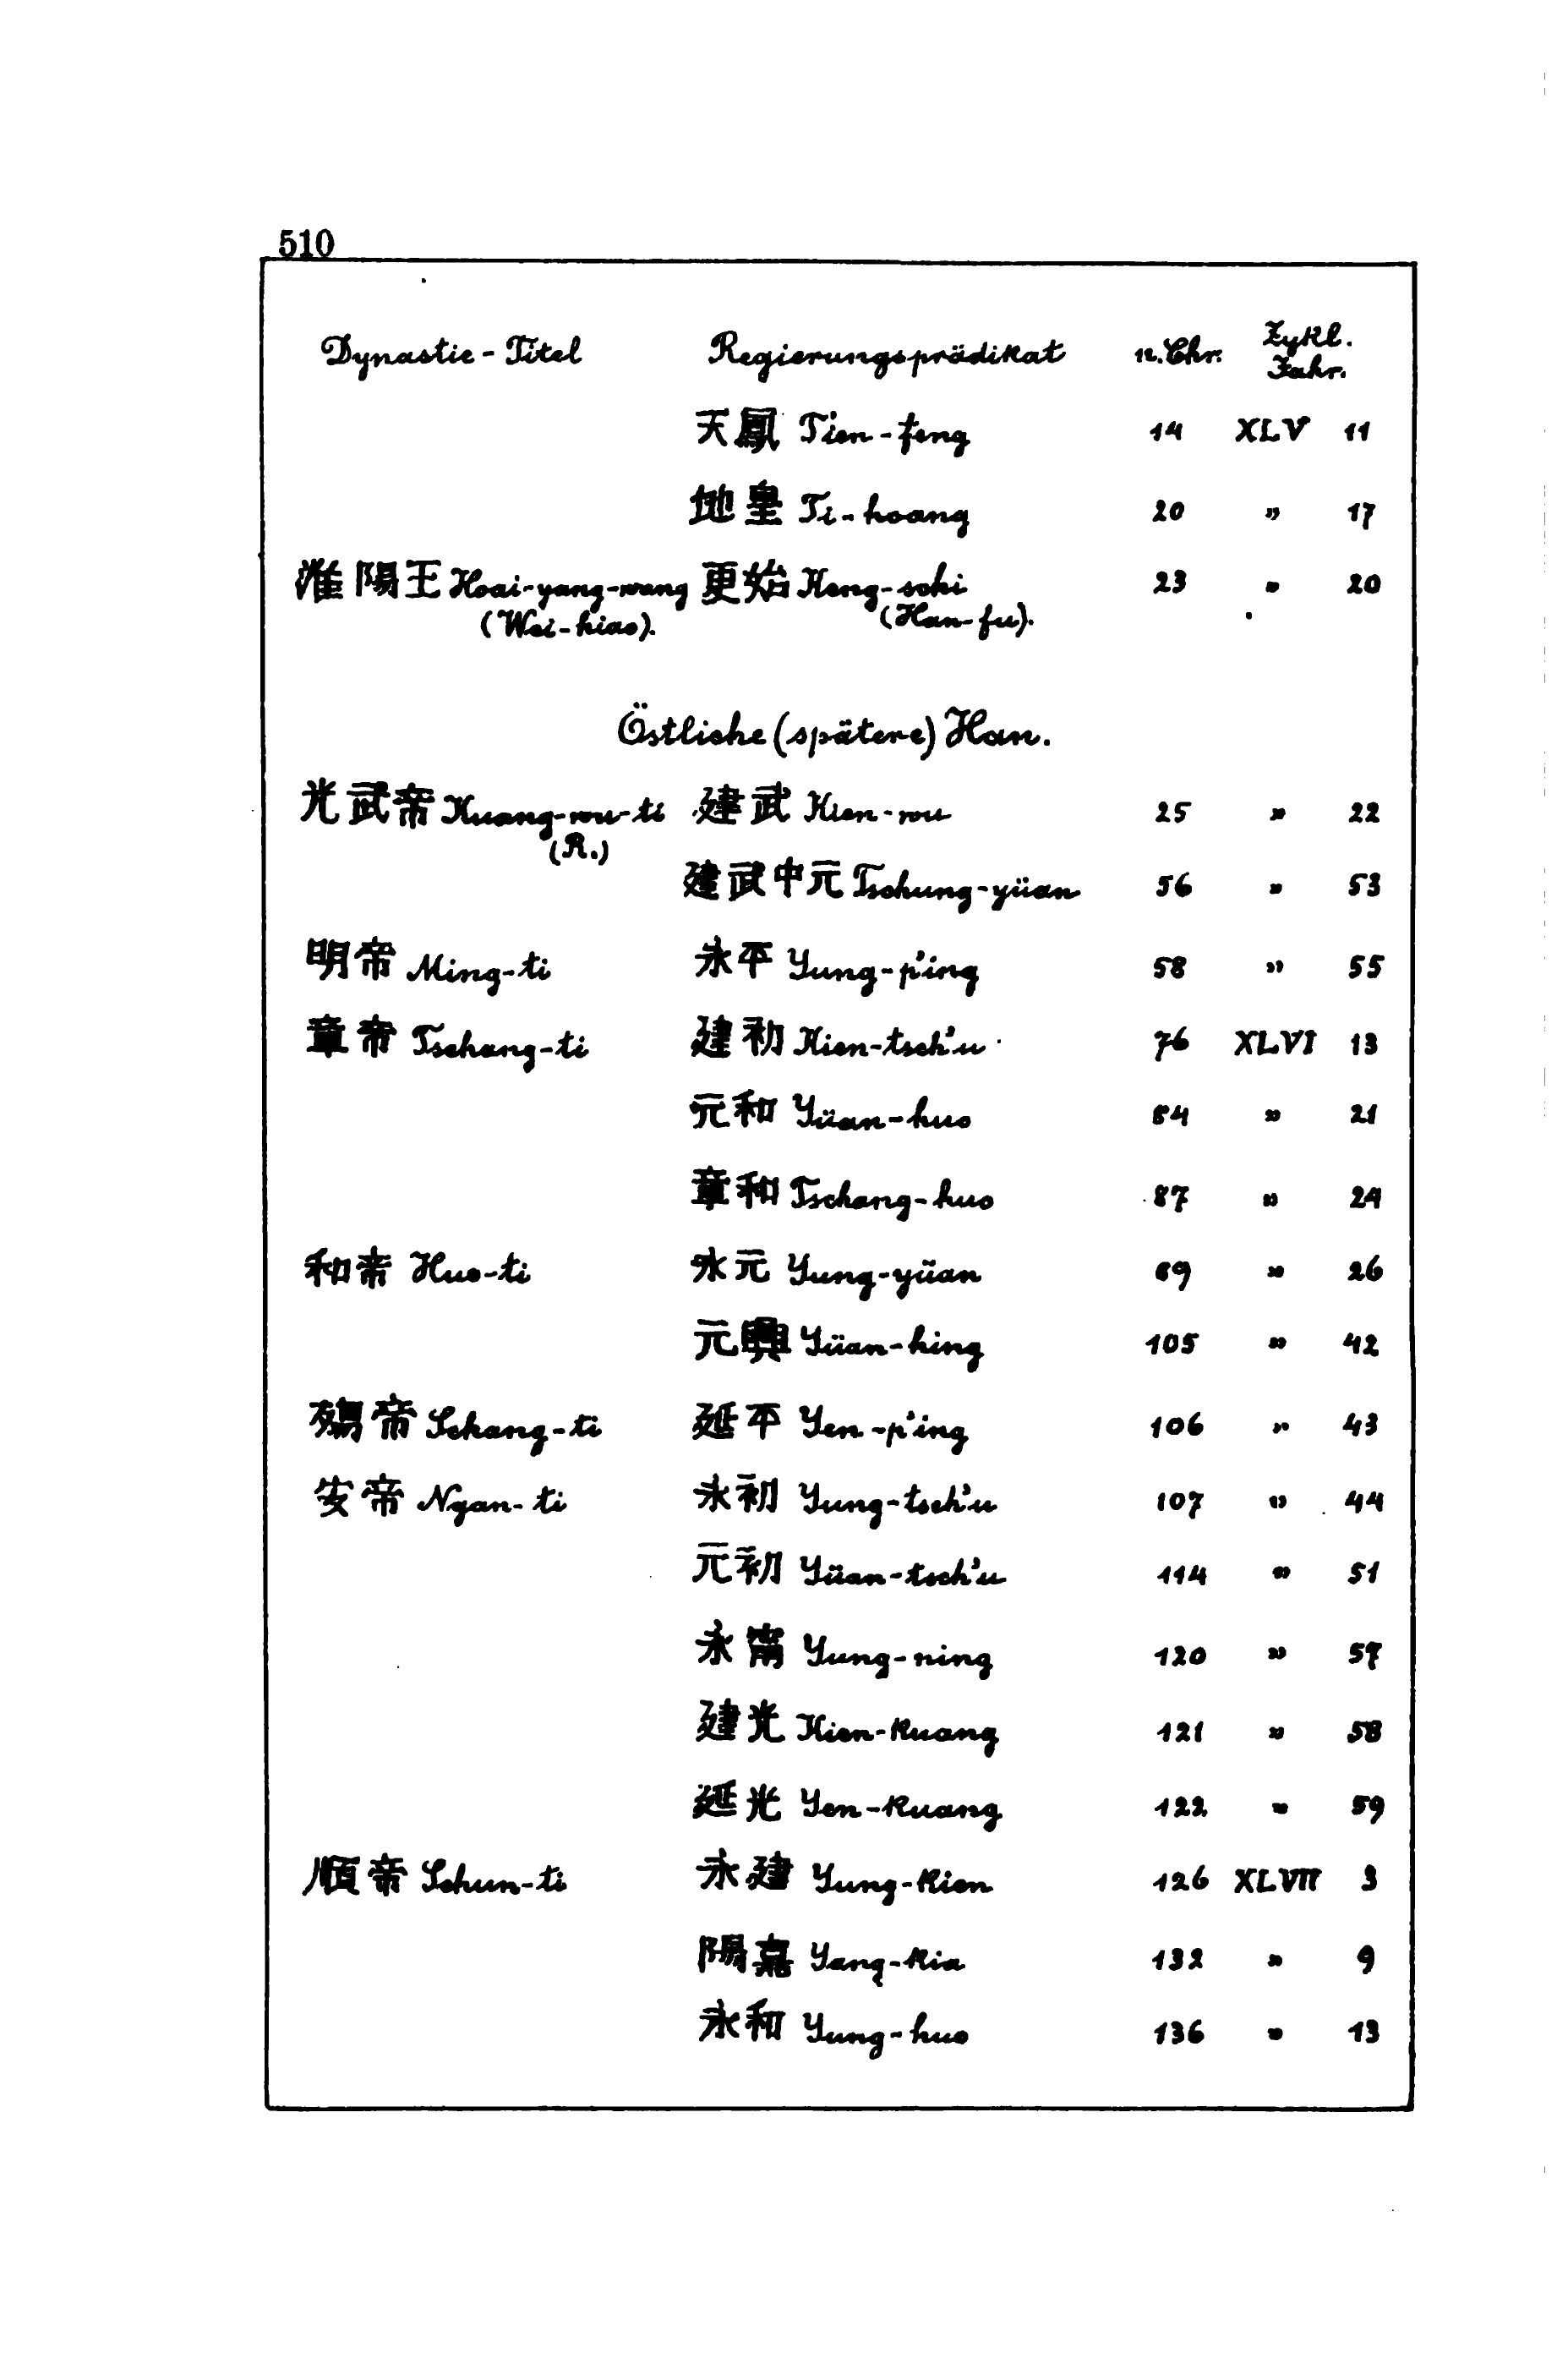 510
Dynastie-Titel Regierungsprädikat n.Chr. Zykl. Jahr.
天鳳 T'ien-feng 14 XLV 11
地皇 Ti-hoang 20 " 17
淮陽王 Hoai-yang-wang 更始 Keng-schi 23 " 20
(Wei-hiao). (Han-fu).
Östliche (spätere) Han.
光武帝 Kuang-wu-ti 建武 Kien-wu 25 " 22
(R.)
建武中元 Tschung-yüan 56 " 53
明帝 Ming-ti 永平 Yung-p'ing 58 " 55
章帝 Tschang-ti 建初 Kien-tsch'u 76 XLVI 13
元和 Yüan-huo 84 " 21
章和 Tschang-huo 87 " 24
和帝 Huo-ti 永元 Yung-yüan 89 " 26
元興 Yüan-hing 105 " 42
殤帝 Schang-ti 延平 Yen-p'ing 106 " 43
安帝 Ngan-ti 永初 Yung-tsch'u 107 " 44
元初 Yüan-tsch'u 114 " 51
永甯 Yung-ning 120 " 57
建光 Kien-kuang 121 " 58
延光 Yen-kuang 122 " 59
順帝 Schun-ti 永建 Yung-kien 126 XLVII 3
陽嘉 Yang-kia 132 " 9
永和 Yung-huo 136 " 13